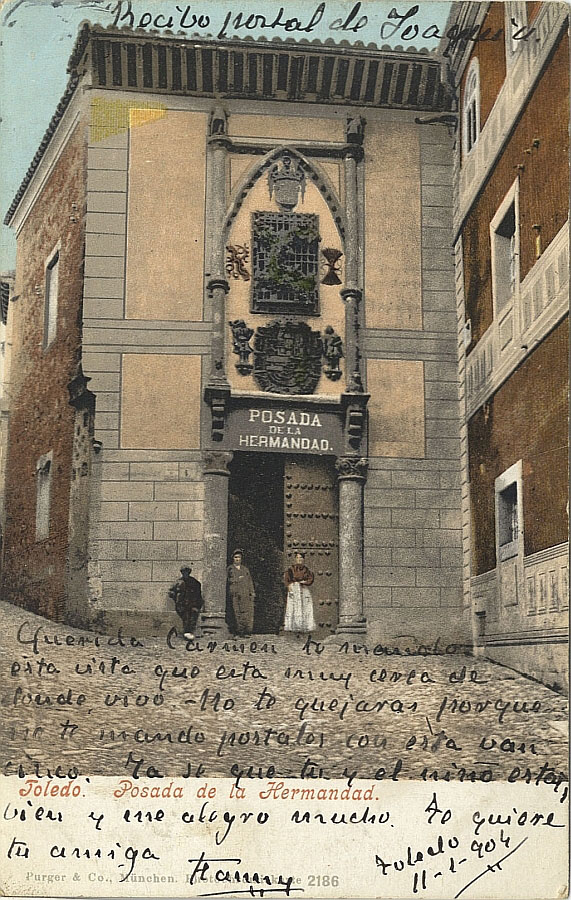 Recibo postal de Joaquín.
POSADA
DE LA
HERMANDAD.
Querida Carmen te mando
esta vista que esta muy cerca de
donde vivo. - No te quejaras porque
no te mando postales con esta van
cinco. Ya se que tu y el niño estais
Toledo. Posada de la Hermandad.
bien y me alegro mucho. Te quiere
tu amiga
Fanny
Toledo
11-1-904
Purger & Co., München. 2186